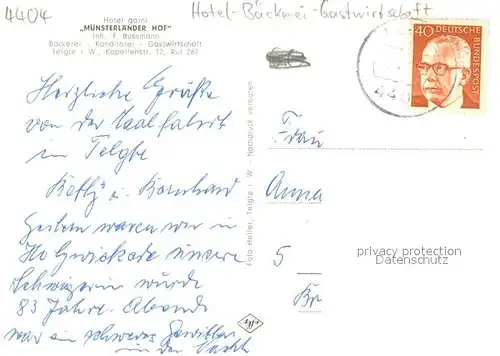 4404
Hotel-Bäckerei-Gastwirtschaft
Hotel garni
„MÜNSTERLÄNDER HOF"
Inh. F. Bussmann
Bäckerei - Konditorei - Gastwirtschaft
Telgte i W., Kapellenstr. 12, Ruf 267
Herzliche Grüße
von der Wallfahrt
in Telgte
u. Bernhard
Gestern waren wir in
Holzwickede unsere
Schwägerin wurde
83 Jahre. Abends
war ein schweres Gewitter
in der Nacht
Foto Heller, Telgte i. W. - Nachdruck verboten
40 DEUTSCHE BUNDESPOST
440
Frau
Anna
5
privacy protection
Datenschutz